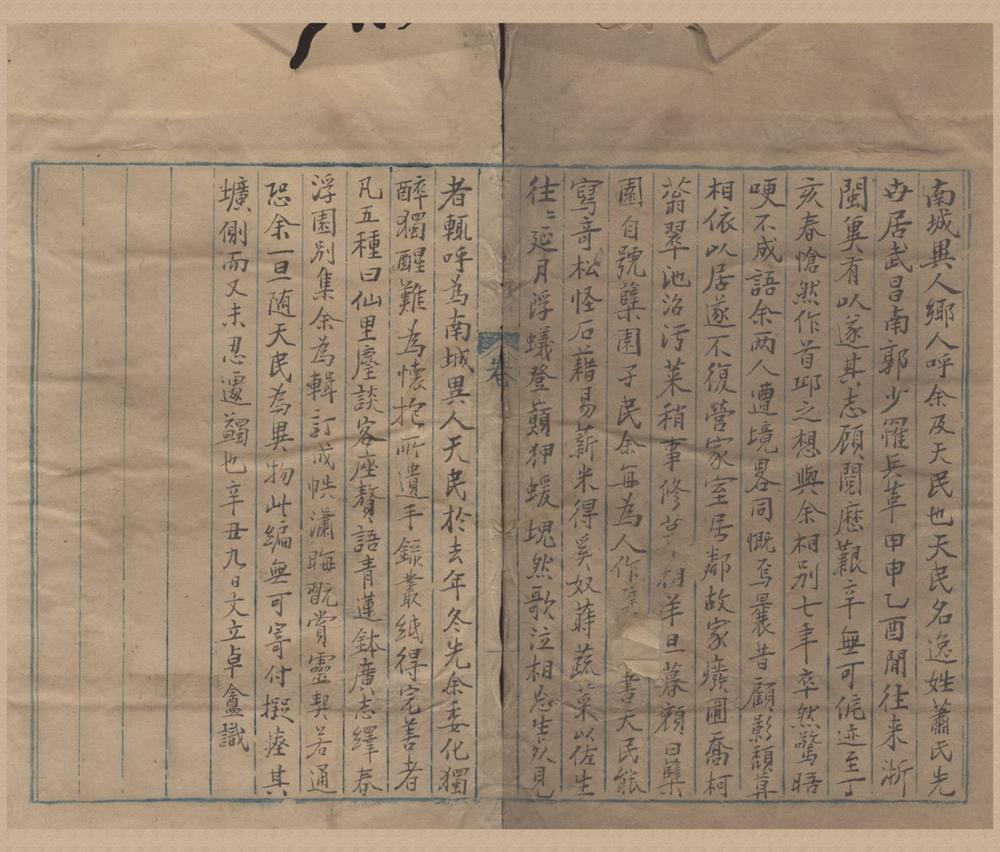 南城異人鄉人呼余及天民也天民名逸姓蕭氏先
世居武昌南郭少罹兵革甲申乙酉間往来浙
閩冀有以遂其志顧閱歷艱辛無可侂迹至丁
亥春愴然作首邱之想與余相别七年卒然驚晤
哽不成語余两人遭境畧同慨焉曩昔顧影頽真
相依以居遂不復營家室居鄰故家癈圃喬柯
蓊翠池沼汚萊稍事修相羊旦暮顏曰櫱
園自號櫱園子民余每為人作書天民能
寫奇松怪石藉易薪米得奚奴蒔蔬菓以佐生
往〻延月浮蟻登巔狎蝯塊然歌泣相忘生死見
卷
者輒呼為南城異人天民於去年冬先余委化獨
醉獨醒難為懷抱所遺手錄叢紙得完善者
凡五種曰仙里麈談客座贅語青蓮鉢廣志繹春
浮園别集余為輯訂成帙瀟晦翫賞靈契若通
恐余一旦随天民為異物此編無可寄付擬瘞其
壙側而又未忍遽蠲也辛丑九日文立卓盦識